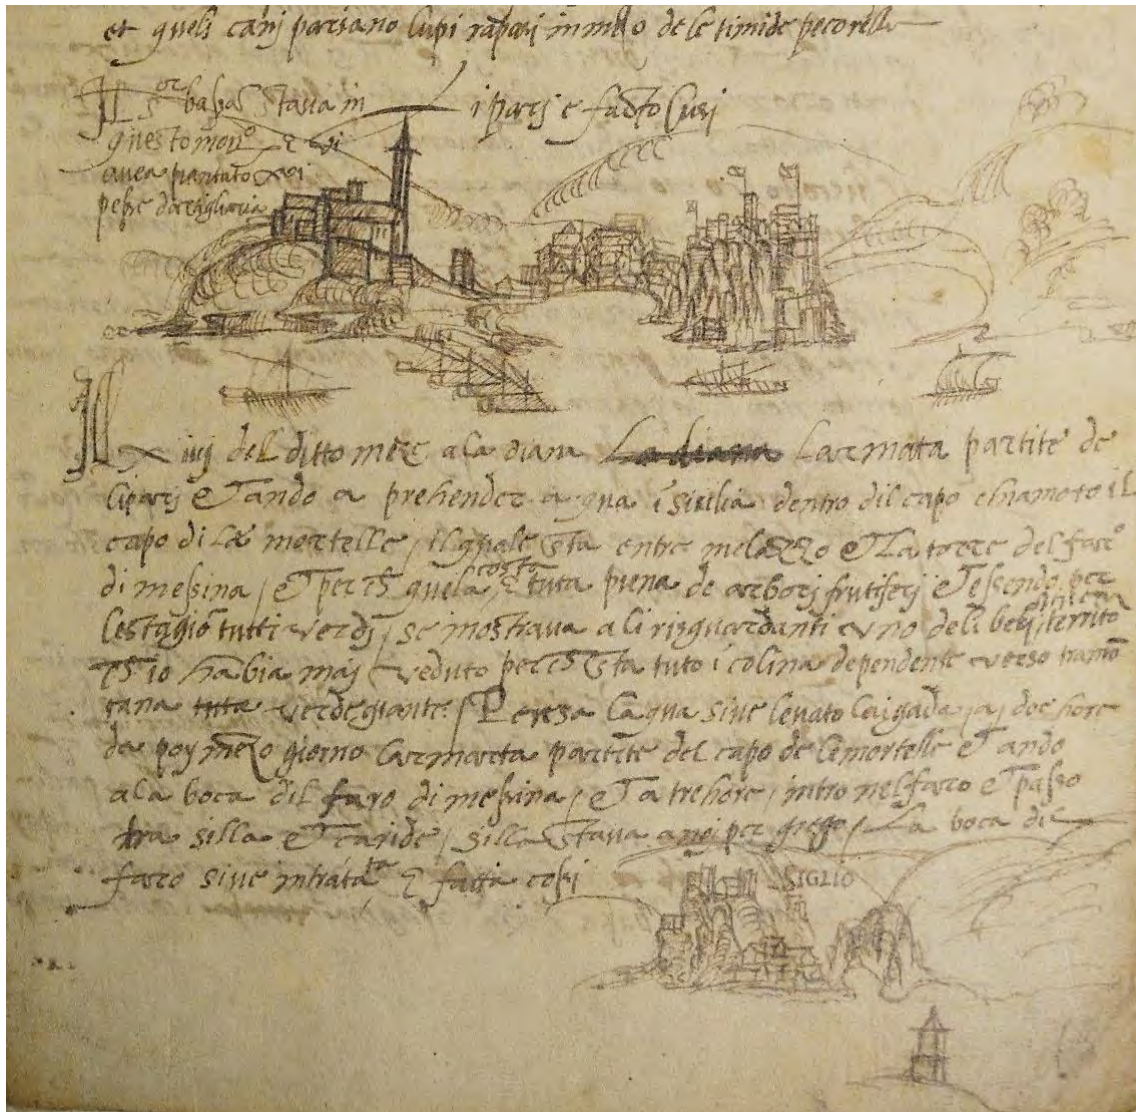 et quelj canj pareano lupi rapacj in mezo de le timide pecorelle
Il Sor bassa stava in
Liparj e facto Cusi
questo mon.o e vi
avea piantato xvi
pesse dartigliaria
Il xiiij del ditto meze ala diana La diana Larmata partite de
liparj et ando a prehender aqua i sicilia dentro dil capo chiamoto il
capo di Le mortelle / il quale sta entre melazzo et La torre del faro
di messina / et perch quela costa e tuta piena de arborj frutiferj et essendo per
lestagio tutti verdj / se mostrava a li risguardanti uno deli belj territo
ch io habia maj veduto perch sta tuto i colina dependente verso tramo
tana tuta verdegiante / Presa Laqua sive levato Laigada / a doe hore
da poy mezo giorno Larmata partite del capo de le mortelle et ando
ala boca dil faro di messina / et a tre hore / intro nel faro et passo
tra silla et caride / silla stava a noi per grego / La boca dil
faro sive intrata e fatta cosi
SIGLIO